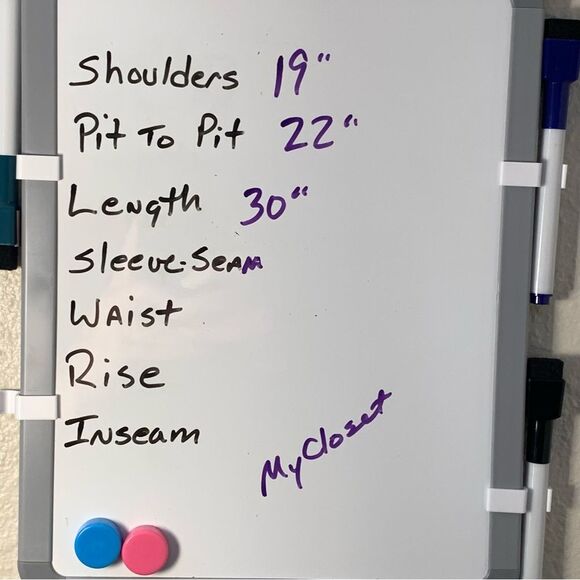 Shoulders 19"
Pit To Pit 22"
Length 30"
Sleeve-Seam
Waist
Rise
Inseam
My Closet